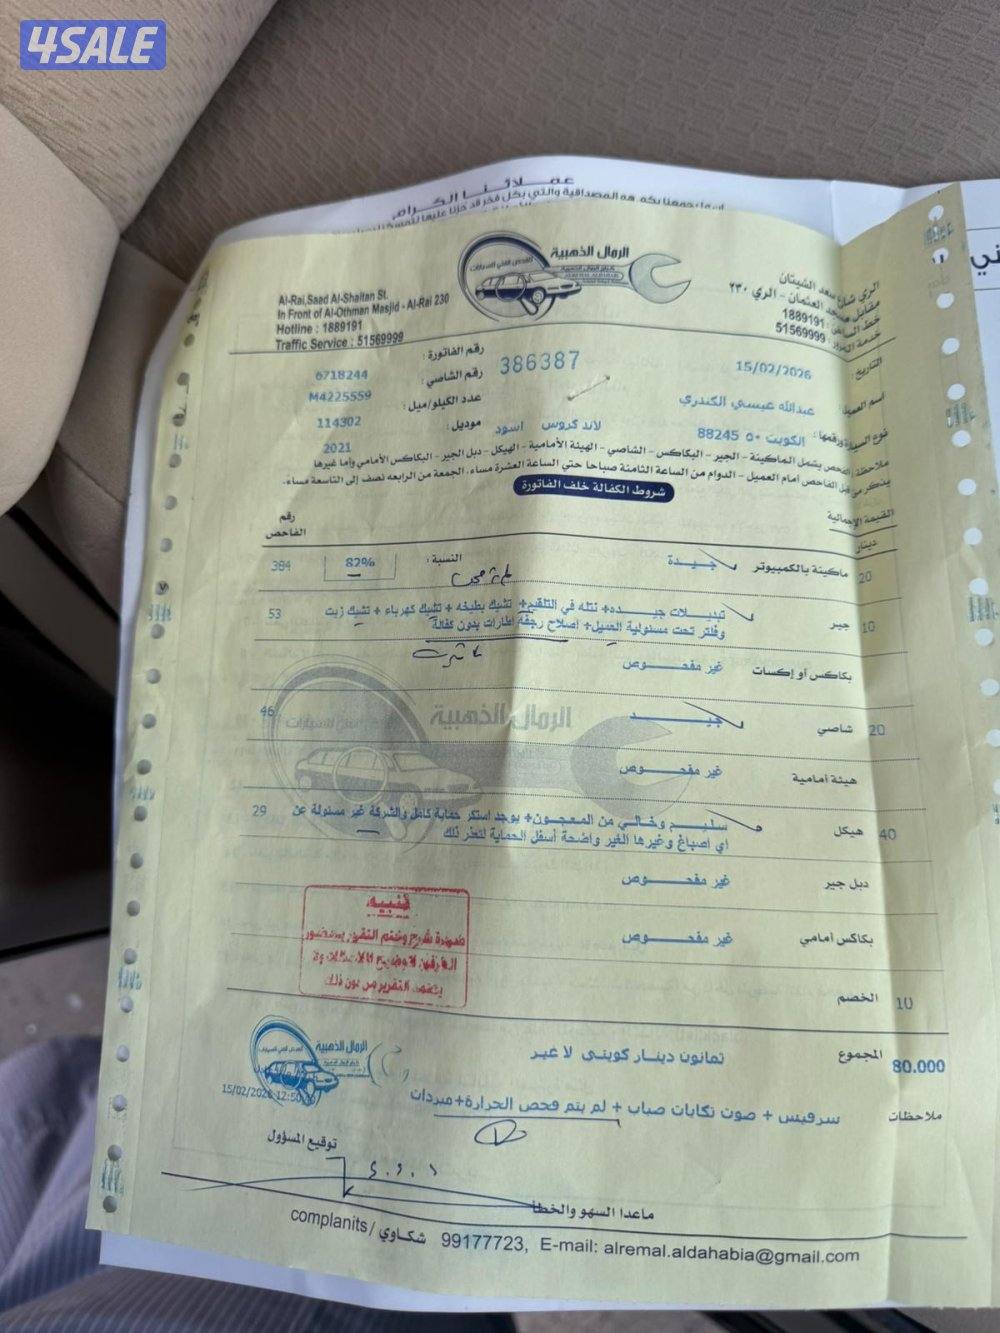 4SALE
عملائنا الكرام
الرمال الذهبية
Al-Rai,Saad Al-Shaitan St.
In Front of Al-Othman Masjid - Al-Rai 230
Hotline : 1889191
Traffic Service : 51569999
الري شارع سعد الشيتان
مقابل مسجد العثمان - الري ٢٣٠
1889191
51569999
التاريخ:
15/02/2026
386387
رقم الفاتورة :
6718244
اسم العميل:
عبدالله عيسي الكندري
رقم الشاصي :
M4225559
نوع السيارة ورقمها:
الكويت ٥٠ 88245
لاند كروس اسود
عدد الكيلو/ميل:
114302
موديل:
2021
ملاحظة: الفحص يشمل الماكينة - الجير - البكاكس - الشاصي - الهيئة الأمامية - الهيكل - دبل الجير - البكاكس الأمامي وأما غيرها
يذكر من قبل الفاحص أمام العميل - الدوام من الساعة الثامنة صباحا حتي الساعة العشرة مساء، الجمعة من الرابعه نصف إلى التاسعة مساءً.
شروط الكفالة خلف الفاتورة
القيمة الإجمالية
دينار
رقم الفاحص
20 ماكينة بالكمبيوتر جيدة النسبة : 82% 384
10 جير تبديلات جيده+ نتله في التلقيم+ تشيك بطيخه + تشيك كهرباء + تشيك زيت 53
وفلتر تحت مسئولية العميل+ إصلاح رجفة اطارات بدون كفالة
بكاكس أو إكسات غير مفحوص
20 شاصي جيد 46
الرمال الذهبية
هيئة أمامية غير مفحوص
40 هيكل سليم وخالي من المعجون+ يوجد استكر حماية كامل والشركة غير مسئولة عن 29
أي اصباغ وغيرها الغير واضحة أسفل الحماية لتعذر ذلك
دبل جير غير مفحوص
بكاكس أمامي غير مفحوص
تنبيه
ضرورة شرح وختم التقرير بحضور
الطرفين لتوضيح الملاحظات ولا
يعتمد التقرير من دون ذلك
10 الخصم
80.000 المجموع ثمانون دينار كويتى لا غير
الرمال الذهبية
15/02/2026 12:50
ملاحظات سرفيس + صوت تكايات صباب + لم يتم فحص الحرارة+مبردات
توقيع المسؤول
ماعدا السهو والخطأ
complanits/ شكاوي 99177723, E-mail: alremal.aldahabia@gmail.com